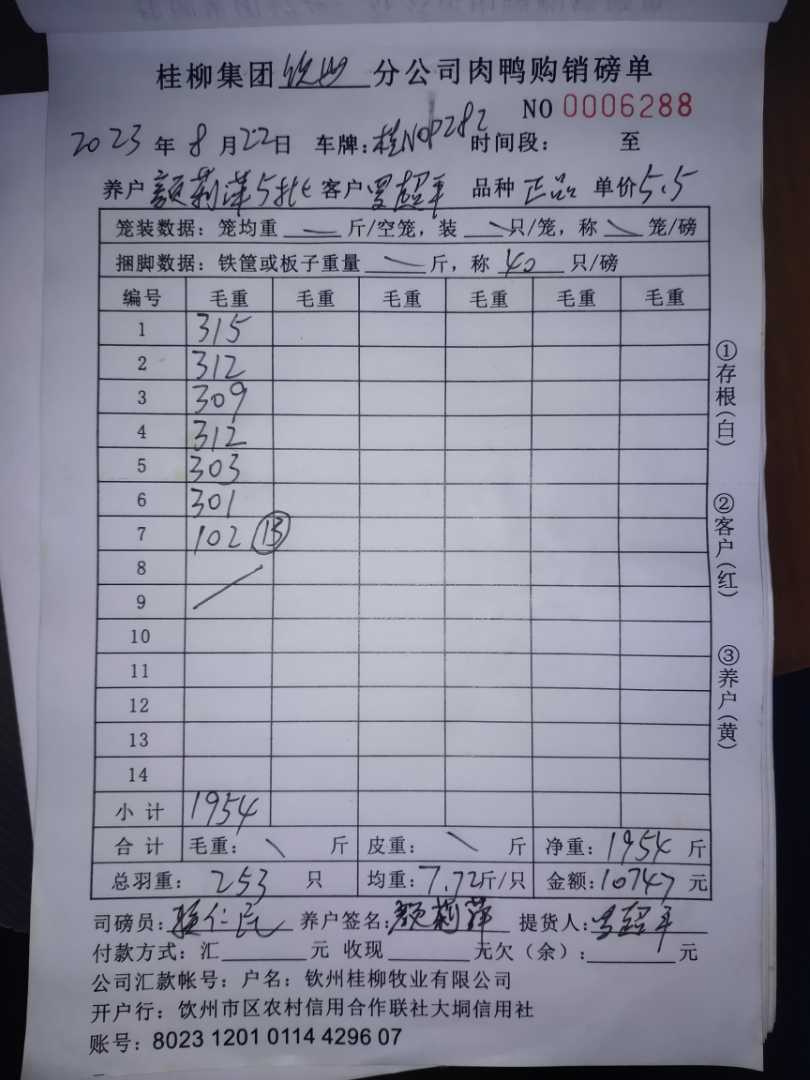 桂柳集团钦州分公司肉鸭购销磅单
NO 0006288
2023年8月22日 车牌:桂N0P282 时间段: 至
养户 颜莉萍5批 客户 罗超平 品种 正品 单价5.5
笼装数据: 笼均重 斤/空笼, 装 只/笼, 称 笼/磅
捆脚数据: 铁筐或板子重量 斤, 称 40 只/磅
编号 毛重 毛重 毛重 毛重 毛重 毛重
1 315
2 312
3 309
4 312
5 303
6 301
7 102 ⑬
8
9
10
11
12
13
14
小计 1954
合计 毛重: 斤 皮重: 斤 净重: 1954 斤
总羽重: 253 只 均重: 7.72斤/只 金额: 10747 元
司磅员: 仁民 养户签名: 颜莉萍 提货人: 罗超平
付款方式: 汇 元 收现 元欠(余): 元
公司汇款帐号: 户名: 钦州桂柳牧业有限公司
开户行: 钦州市区农村信用合作联社大垌信用社
账号: 8023 1201 0114 4296 07
①存根(白)
②客户(红)
③养户(黄)